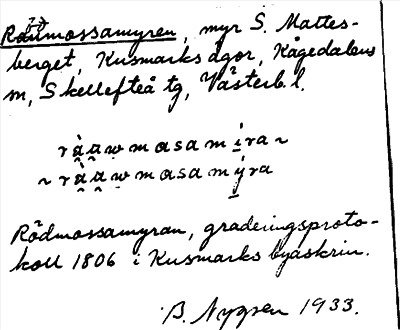 Raumossamyren, myr S. Mattes-
berget, Kusmarks ägor, Kågedalens
sn, Skellefteå tg, Västerb. l.
rà̂a̭w mo asa míra ~
~ râa̭w mo asa mýra
Rödmossamyran, graderingsproto-
koll 1806 i Kusmarks byaskrin.
B. Nygren 1933.